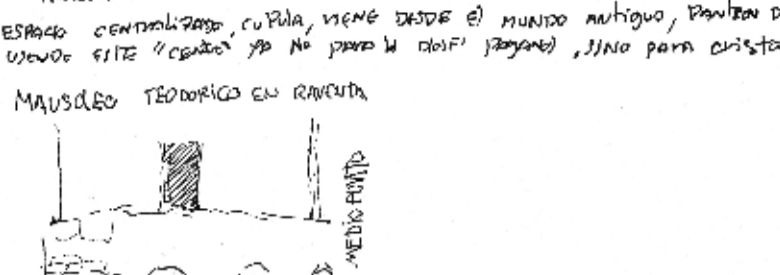 ESPACIO CENTRALIZADO, CUPULA, VIENE DESDE El MUNDO ANTIGUO, PANTEON D
USENDO ESTE "CENTRO" YA NO PARA DIOSES PAGANO, SINO PARA CRISTO
MAUSOLEO TEODORICO EN RAVENTA
MEDIO PUNTO